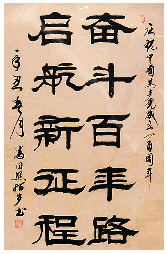 庆祝中国共产党成立一百周年
奮斗百年路
启航新征程